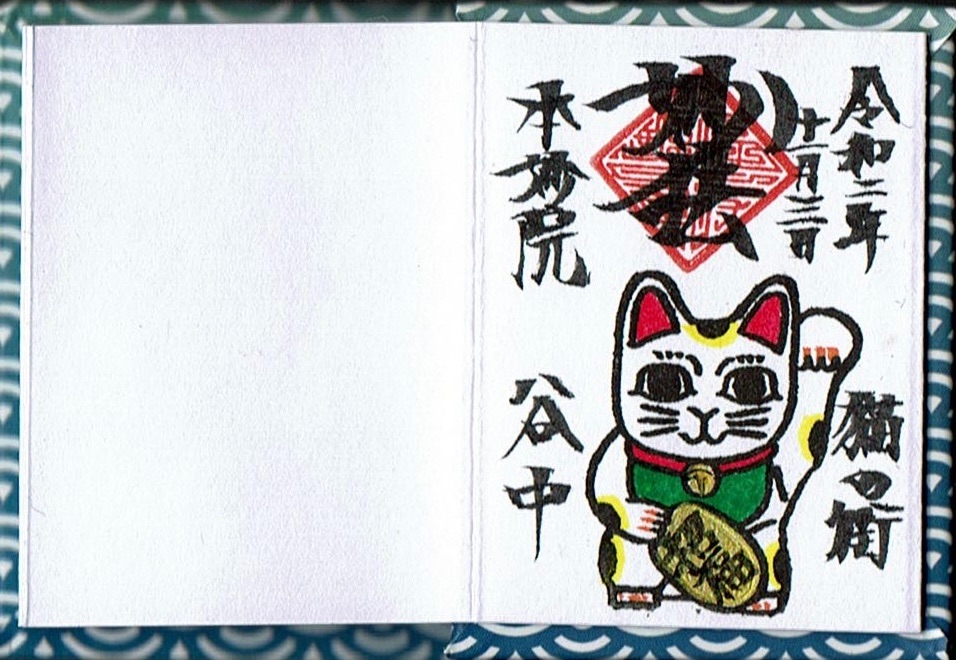 令和二年
十一月三日
妙法
本妙院
猫の街
谷中